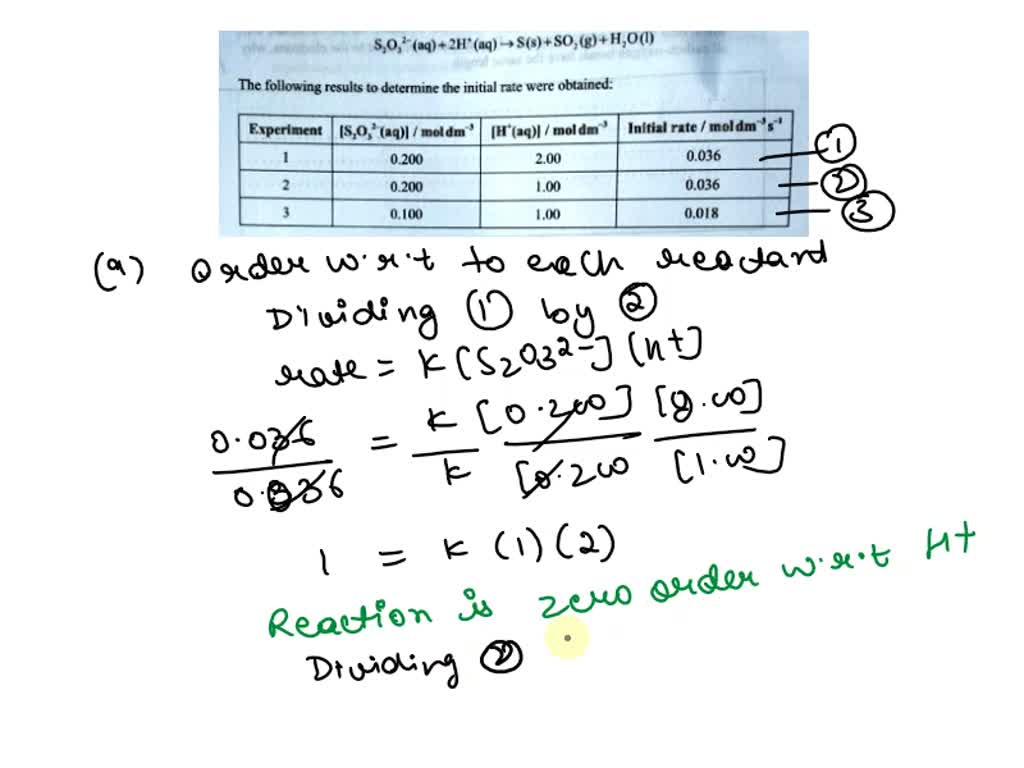 S₂O₃²⁻(aq)+2H⁺(aq)→S(s)+SO₂(g)+H₂O(l)
The following results to determine the initial rate were obtained:
Experiment [S₂O₃²⁻(aq)] / mol dm⁻³ [H⁺(aq)] / mol dm⁻³ Initial rate / mol dm⁻³ s⁻¹
1 0.200 2.00 0.036 — ①
2 0.200 1.00 0.036 — ②
3 0.100 1.00 0.018 — ③
(a) order w.r.t to each reactant
Dividing ① by ②
rate = K[S2O3²⁻][H+]
0.036/0.036 = K/K [0.200]/[0.200 [2.00]/[1.00]
1 = K (1)(2)
Reaction is zero order w.r.t H+
Dividing ②